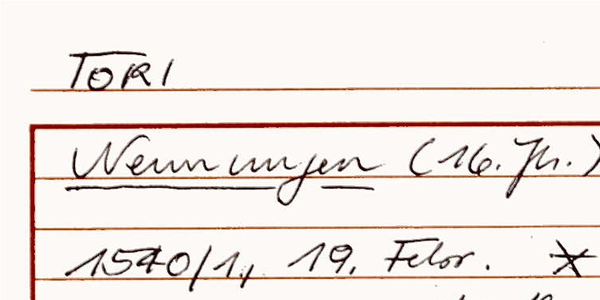 TORI
Nennungen (16. Jh.)
1540/1, 19. Febr.